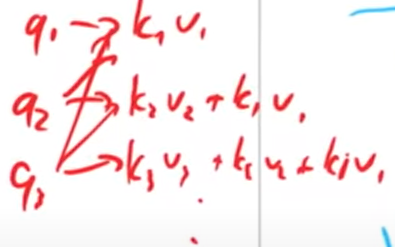 q₁ → k₁ v₁
q₂ → k₂ v₂ + k₁ v₁
q₃ → k₃ v₃ + k₂ v₂ + k₁ v₁